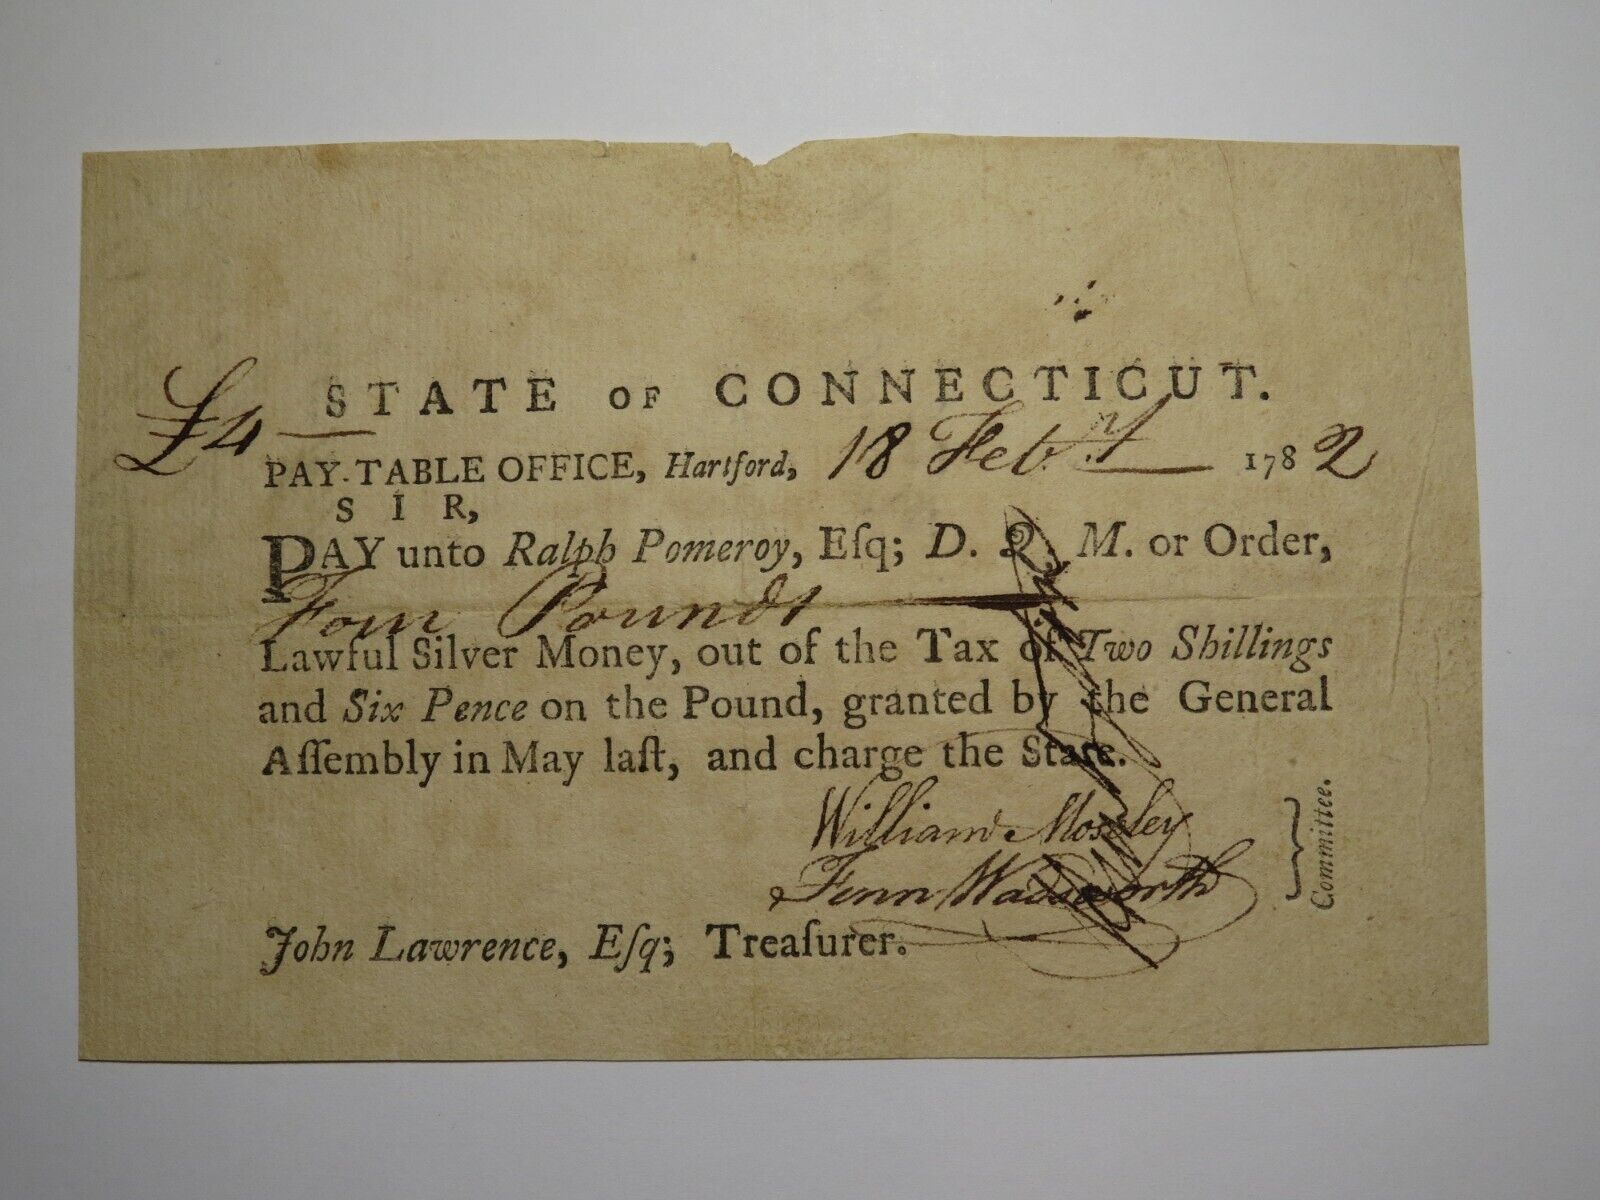 STATE OF CONNECTICUT.
£4
PAY-TABLE OFFICE, Hartford, 18 Feb.ry 1782
SIR,
PAY unto Ralph Pomeroy, Eſq; D. Q. M. or Order,
Four Pounds
Lawful Silver Money, out of the Tax of Two Shillings
and Six Pence on the Pound, granted by the General
Aſſembly in May laſt, and charge the State.
William Moseley
Fenn Wadsworth
} Committee.
John Lawrence, Eſq; Treaſurer.